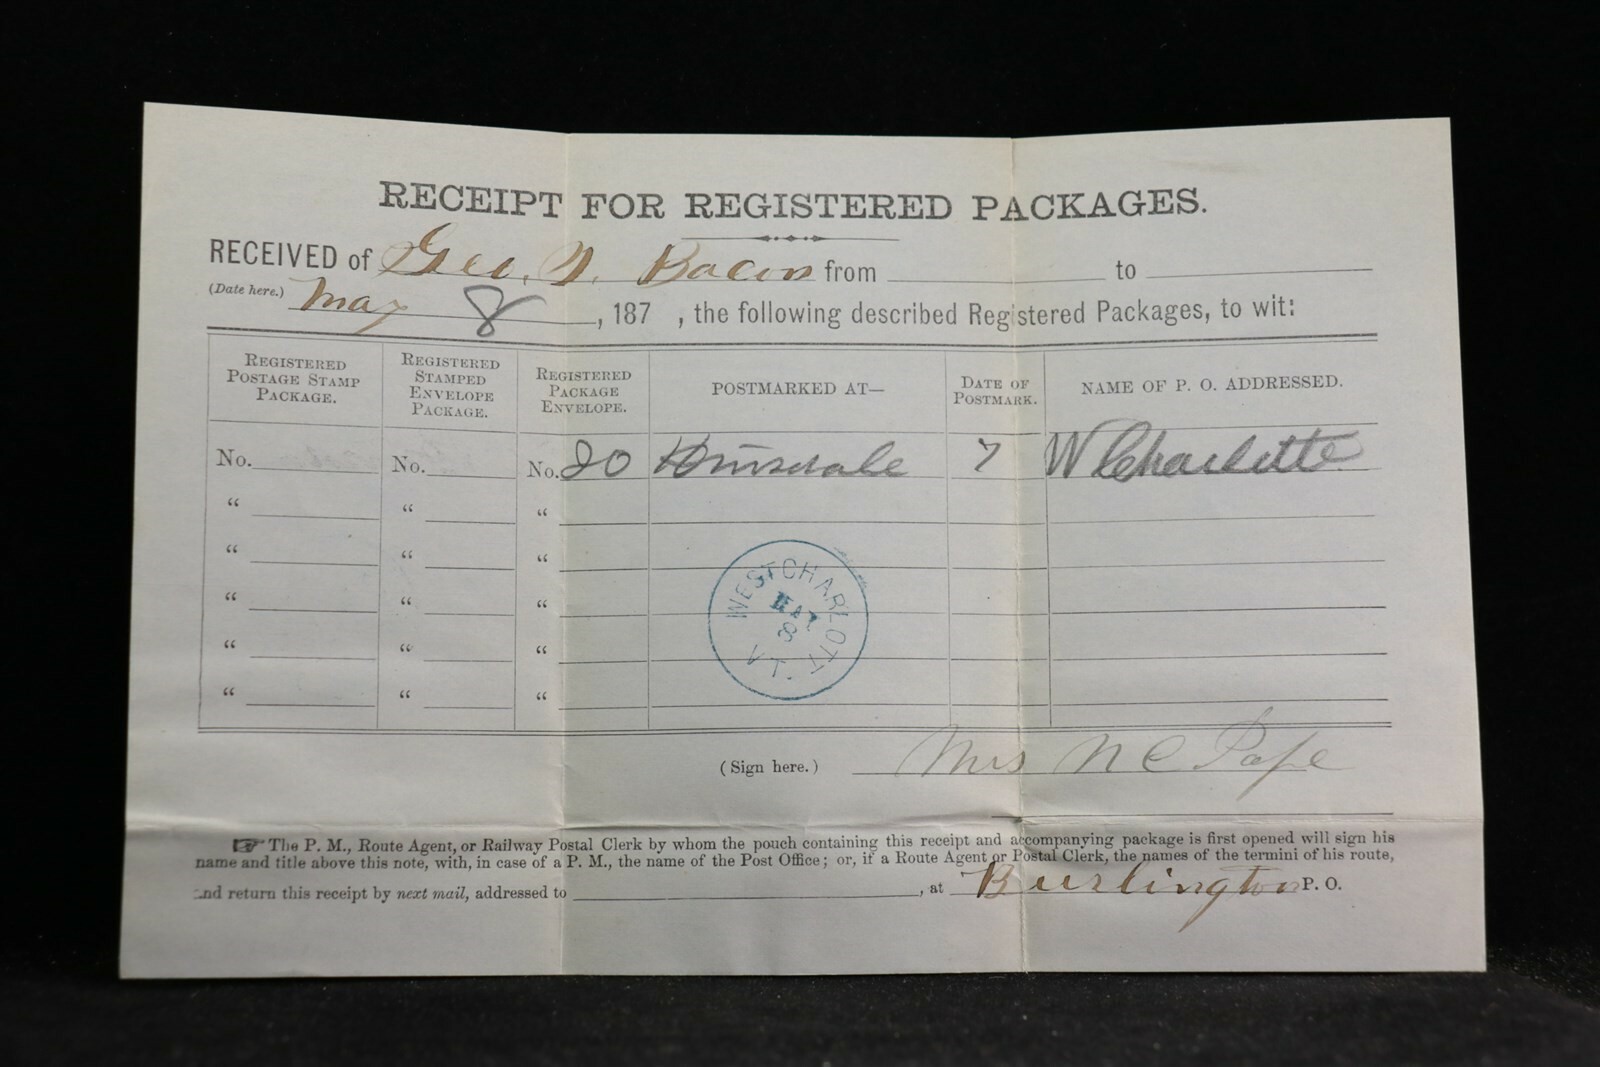 RECEIPT FOR REGISTERED PACKAGES.
RECEIVED of Geo. D. Bacon from to
(Date here.) May 8, 187 , the following described Registered Packages, to wit:
REGISTERED POSTAGE STAMP PACKAGE. REGISTERED STAMPED ENVELOPE PACKAGE. REGISTERED PACKAGE ENVELOPE. POSTMARKED AT— DATE OF POSTMARK. NAME OF P. O. ADDRESSED.
No. No. No. 20 Hinsdale 7 W Charlotte
“ “ “
“ “ “
“ “ “
“ “ “
“ “ “
WEST CHARLOTT
MAY
8
VT.
(Sign here.) Mrs N C Pope
☞ The P. M., Route Agent, or Railway Postal Clerk by whom the pouch containing this receipt and accompanying package is first opened will sign his
name and title above this note, with, in case of a P. M., the name of the Post Office; or, if a Route Agent or Postal Clerk, the names of the termini of his route,
and return this receipt by next mail, addressed to , at Burlington P. O.